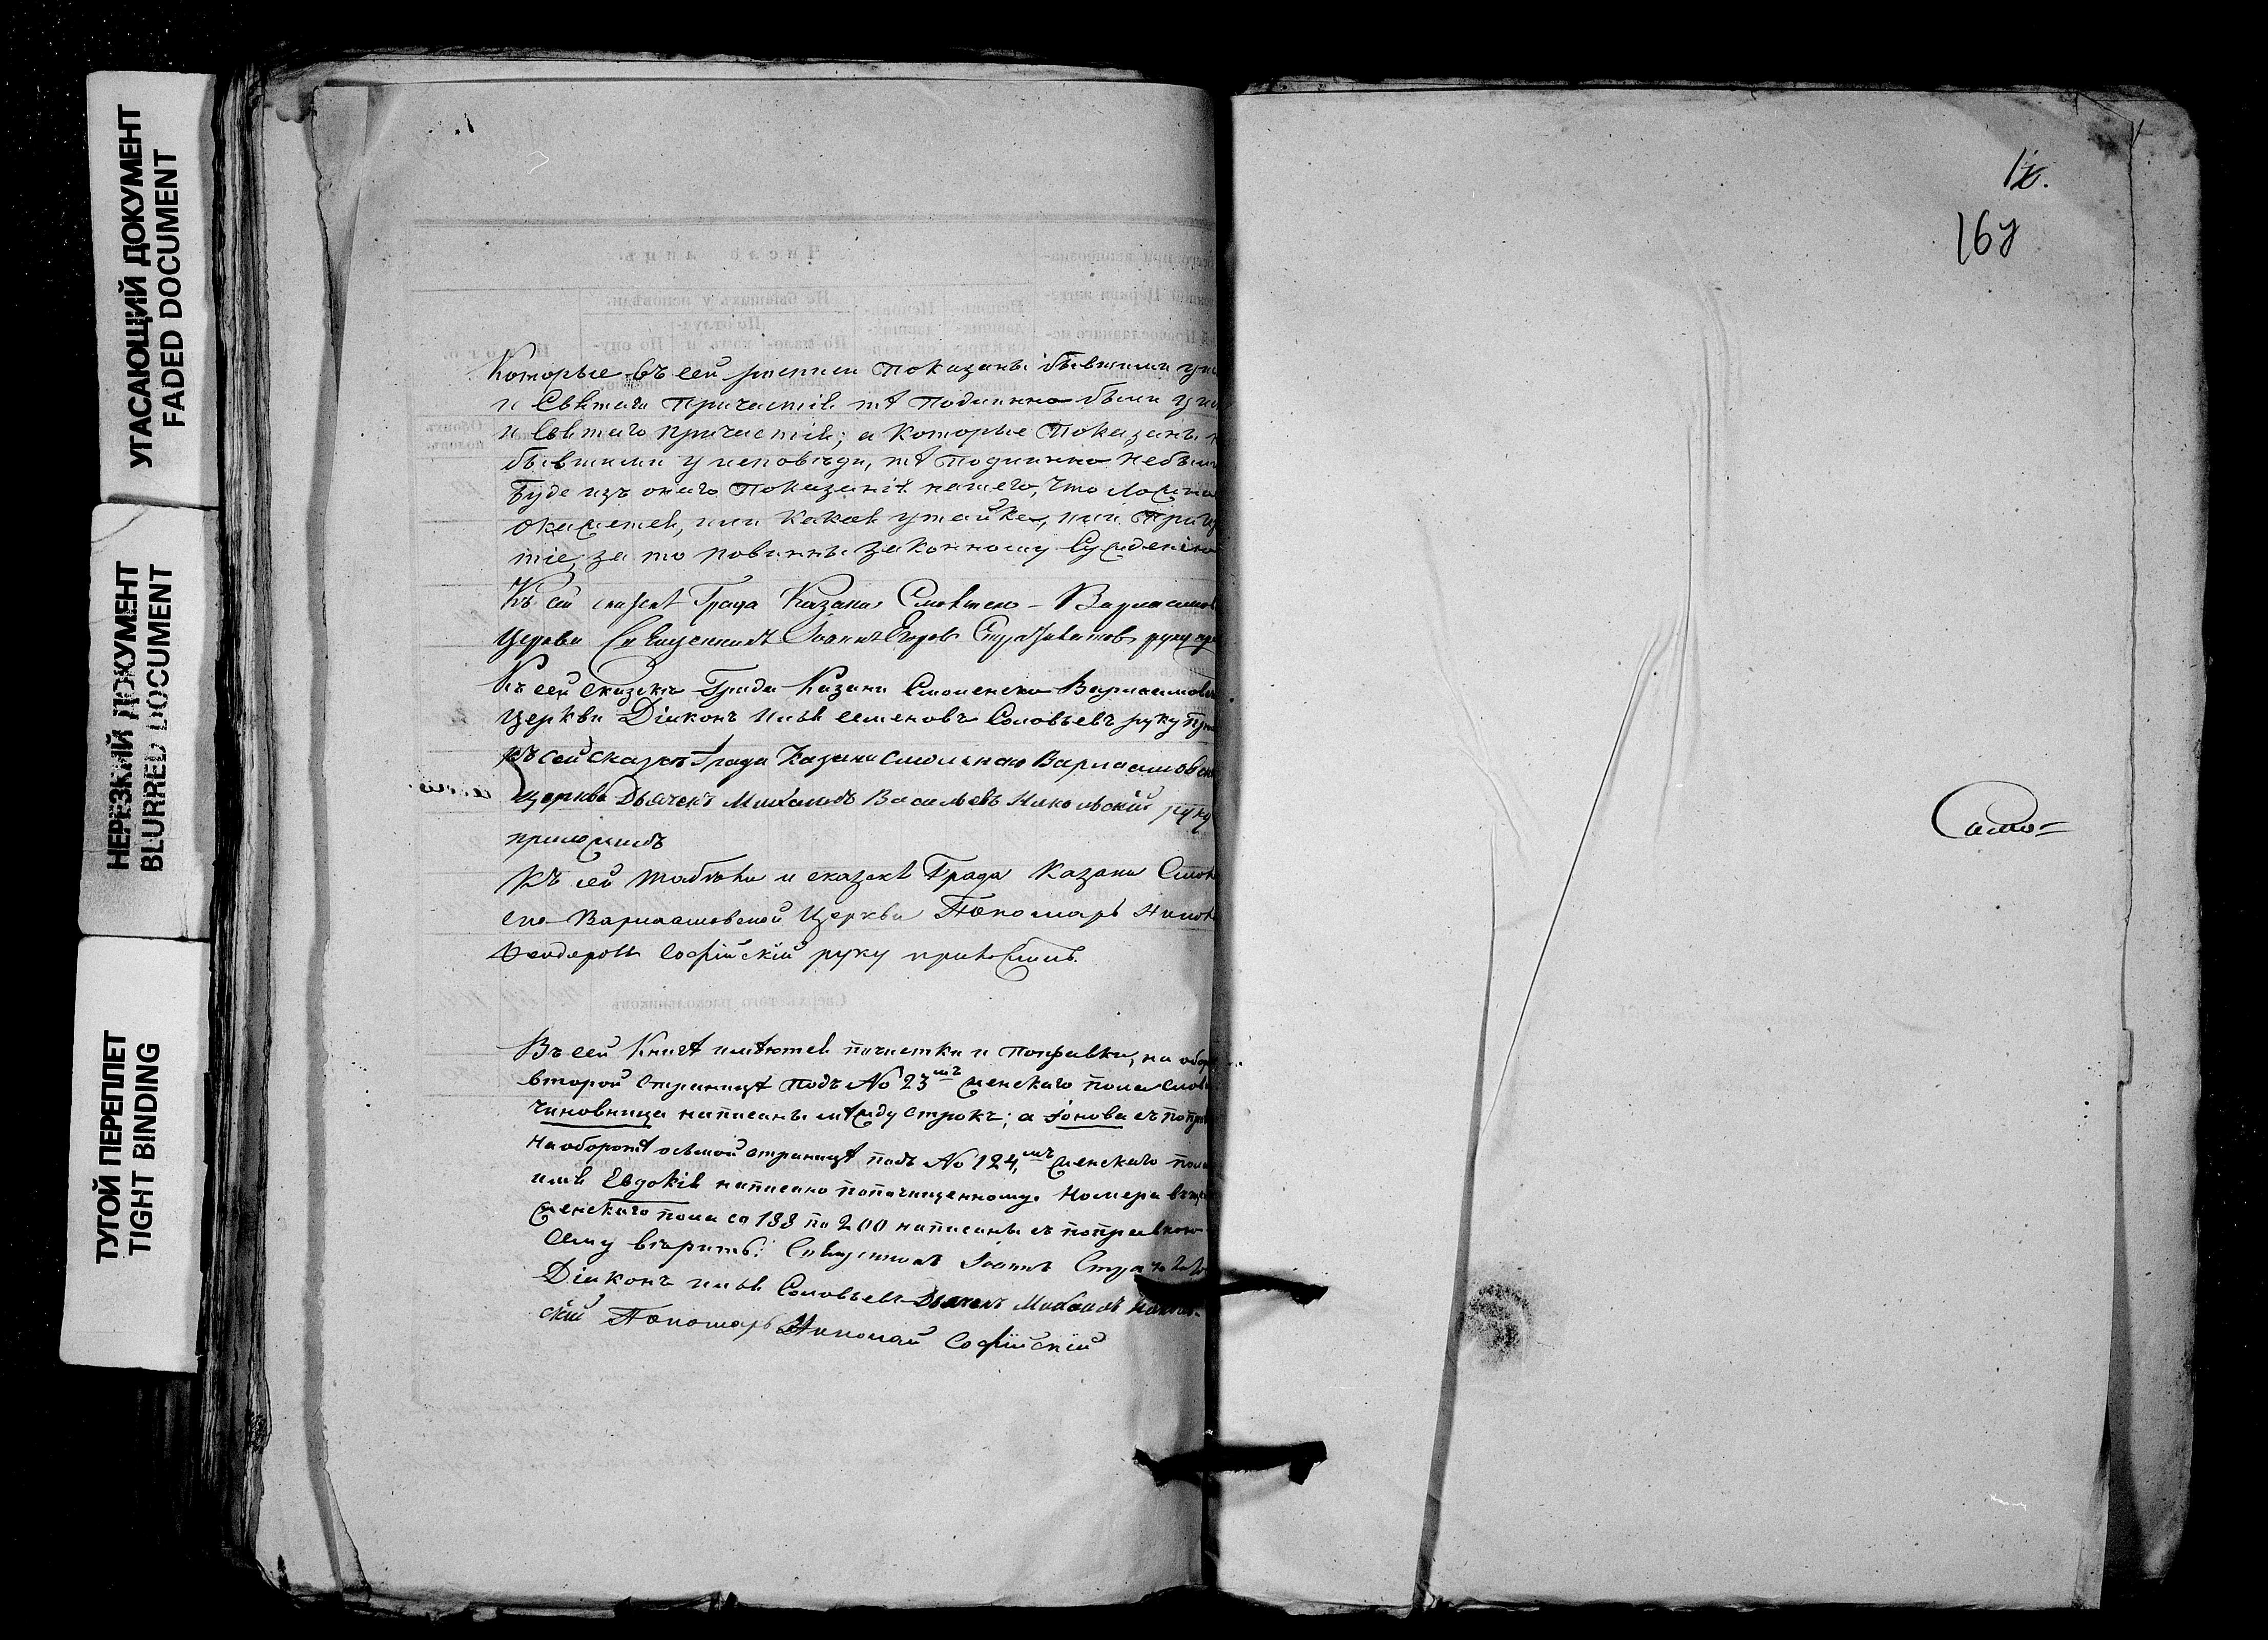 УГАСАЮЩИЙ ДОКУМЕНТ
FADED DOCUMENT
НЕРЕЗКИЙ ДОКУМЕНТ
BLURRED DOCUMENT
ТУГОЙ ПЕРЕПЛЕТ
TIGHT BINDING
Которые въ сей росписи показаны бывшими у
и Святаго Причастія тѣ подлинно были у
и Святаго Причастія; а которые показаны
бывшими у исповѣди, тѣ подлинно небыли
буде изъ онаго показанія нашего, что ложно
окажется, или какая утайка, или
тіе, за то повинны законному сужденію
Къ сей сказкѣ Града Казани Смоленско-Варлаамов
Церкви Священникъ Іоаннъ Егоровъ руку
Къ сей сказкѣ Града Казани Смоленско Варлаамов
Церкви Діаконъ Илья Семеновъ Соловьевъ руку
Къ сей сказкѣ Града Казани Смоленско Варлаамовск
Церкви Дьячекъ Михаилъ Васильевъ Никольскій руку
приложилъ
Къ сей табели и сказкѣ Града Казани Смолен
ско-Варлаамовской Церкви Пономарь Никол
Ѳеодоровъ Софійскій руку приложилъ.
Въ сей Книгѣ имѣются почистки и поправки, на обор
второй страницѣ подъ No 23мъ женскаго пола слов
чиновница написаны между строкъ; а Іонова съ попр
На оборотѣ осьмой страницѣ подъ No 124,мъ женскаго пола
имя Евдокія написано попочищенному. Номера въ
женскаго пола со 188 по 200 написаны съ поправкою
Сему вѣрить: Священникъ Іоаннъ
Діаконъ Илья Соловьевъ Дьячекъ Михаилъ Николь-
скій Пономарь Николай Софійскій
12.
167